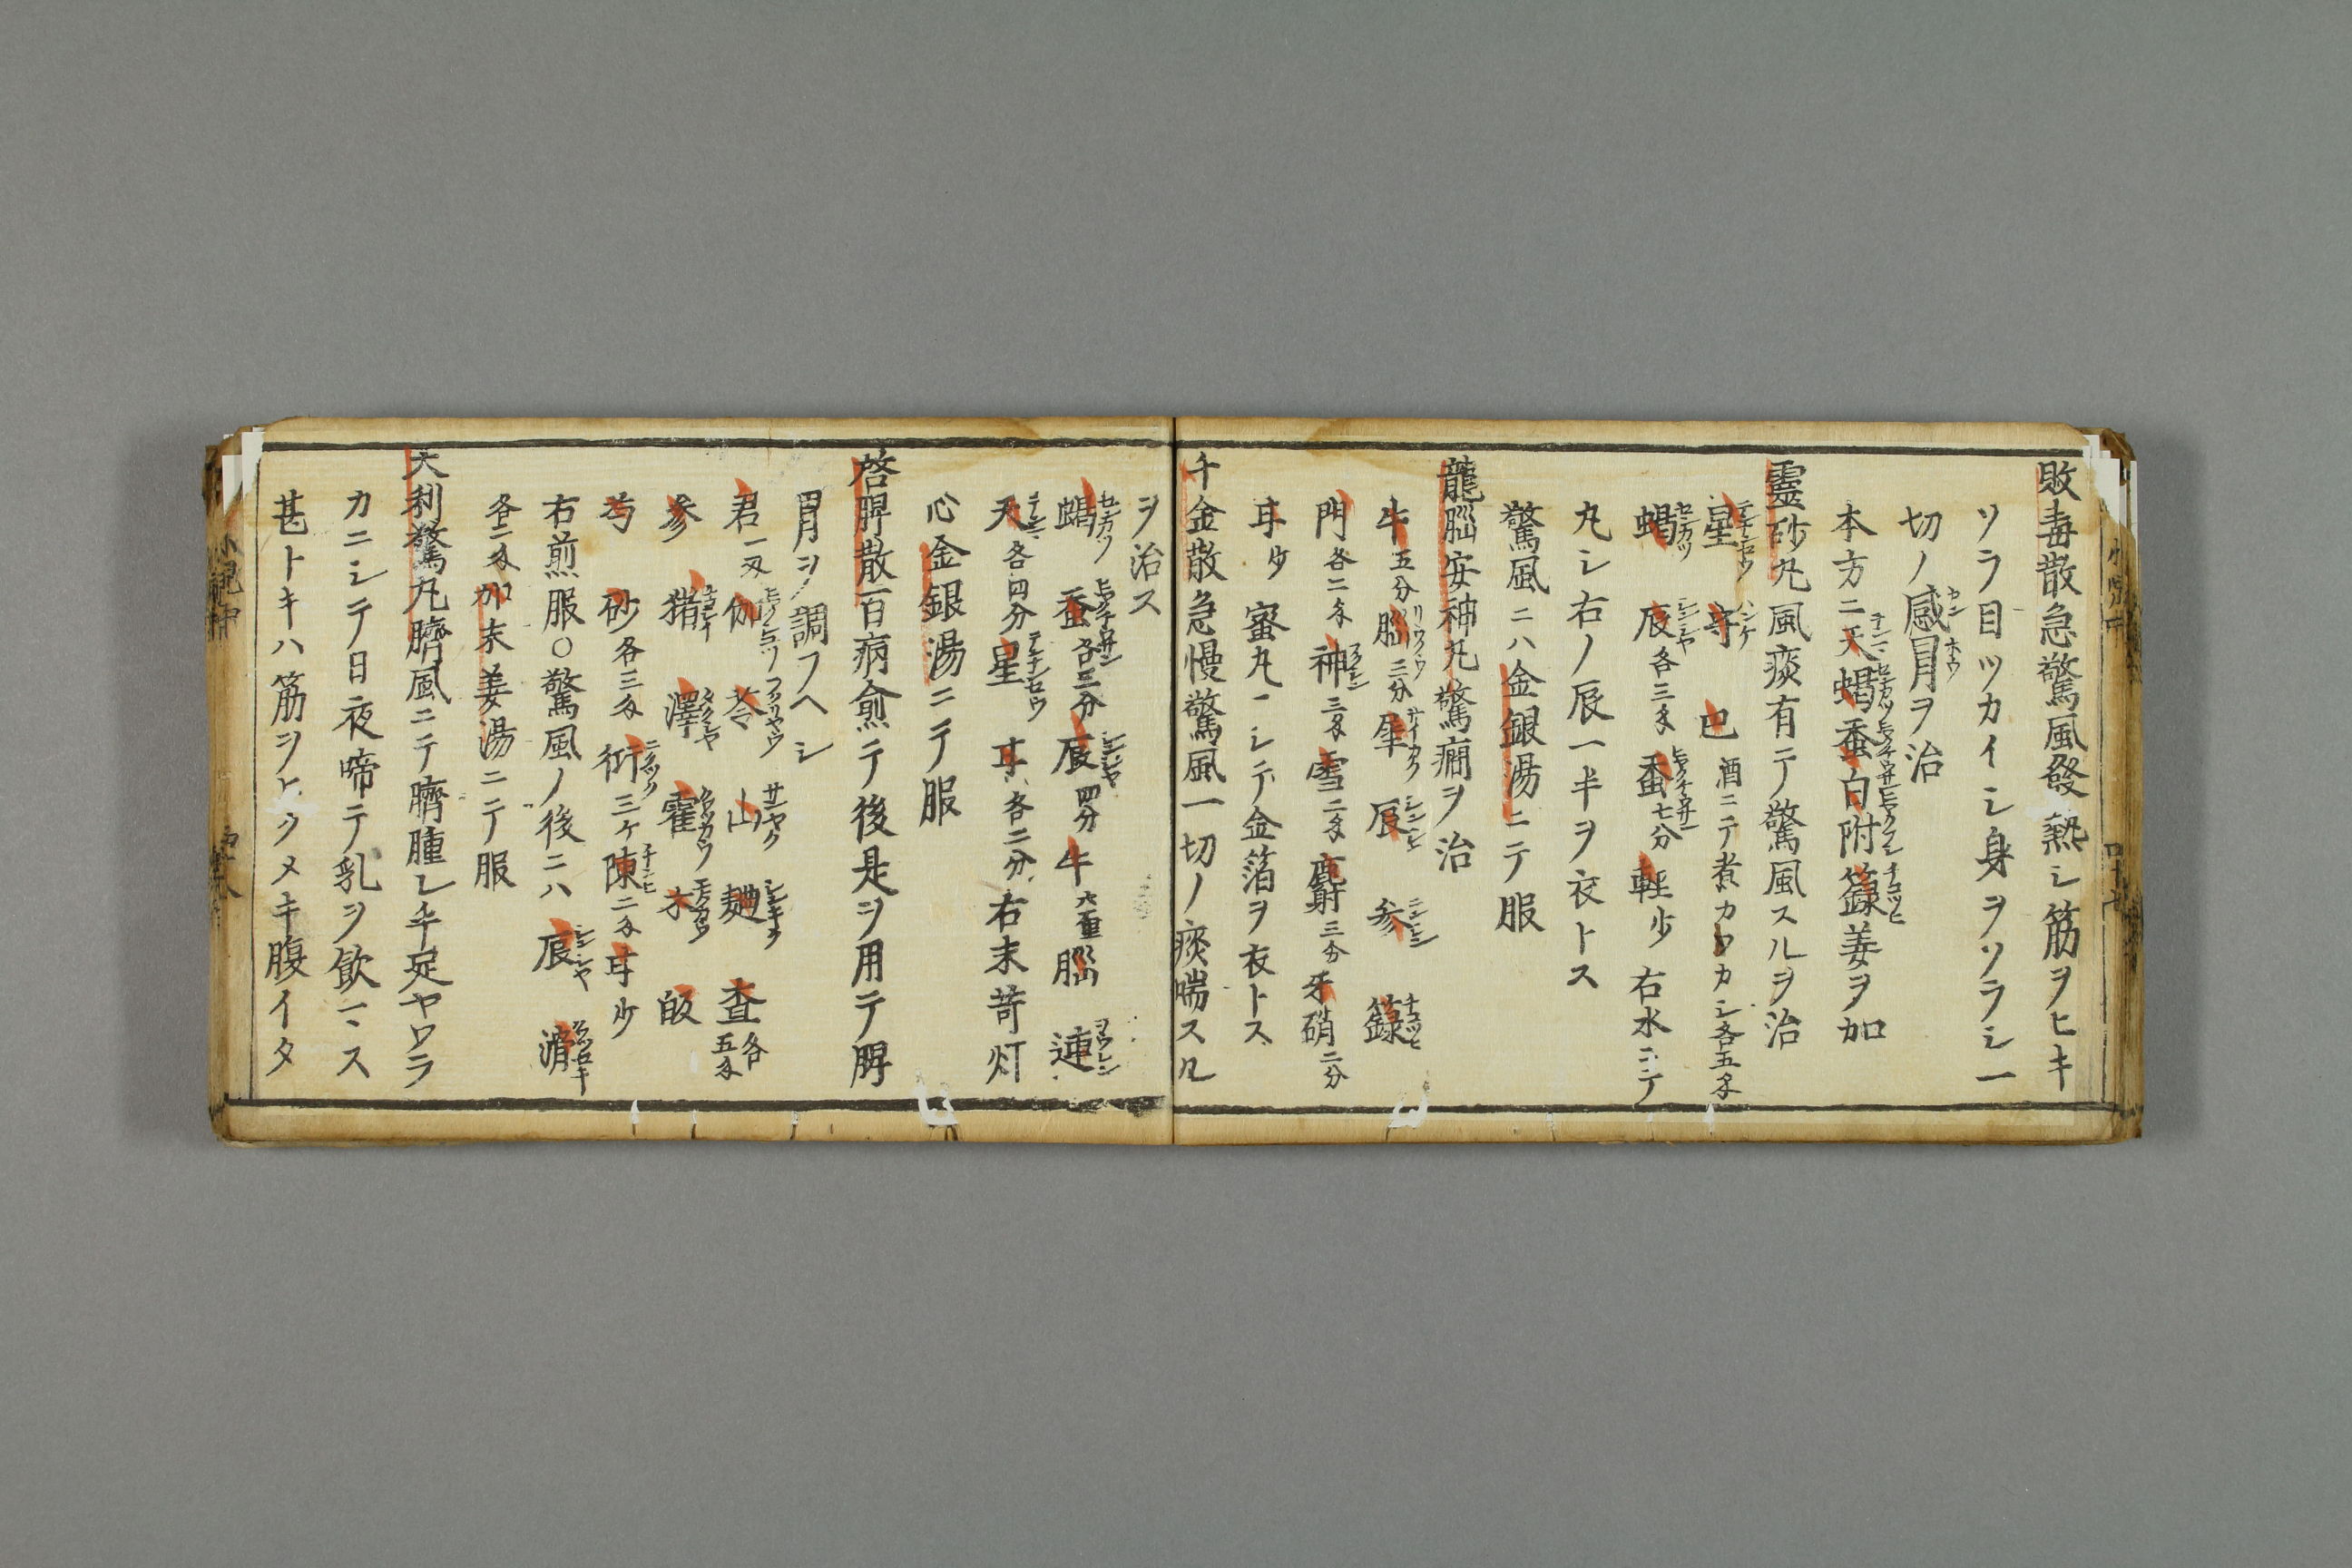 敗毒散急驚風發熱シ筋ヲヒキ
ソラ目ツカイシ身ヲソラシ一
切ノ感冒ヲ治
本方ニ天蝎蚕白附籙姜ヲ加
靈砂丸風痰有テ驚風スルヲ治
星 守 巴 酒ニテ煮カワカシ各五匁
蝎 辰各三匁 蚕七分 輕少 右水ニテ
丸シ右ノ辰一半ヲ衣トス
驚風ニハ金銀湯ニテ服
龍腦安神丸驚癇ヲ治
牛五分 腦二分 犀 辰 参 籙
門各二匁 神三匁 雪二匁 麝三分 牙硝二分
甘少 蜜丸ニシテ金箔ヲ衣トス
千金散急慢驚風一切ノ痰喘スル
ヲ治ス
蝎 蚕各三分 辰四分 牛六重 腦 連
天各四分 星 甘各二分 右末苛灯
心金銀湯ニテ服
啓脾散百病愈テ後是ヲ用テ脾
胃ヲ調フヘシ
君一匁 伽 苓 山 麯 査各五匁
参 猪 澤 霍 木 皈
芍 砂各三匁 衍三ケ 陳二匁 甘少
右煎服〇驚風ノ後ニハ 辰 滑
各二匁加末姜湯ニテ服
大利驚丸臍風ニテ臍腫レ手足ヤワラ
カニシテ日夜啼テ乳ヲ飲マス
甚トキハ筋ヲヒクメキ腹イタ